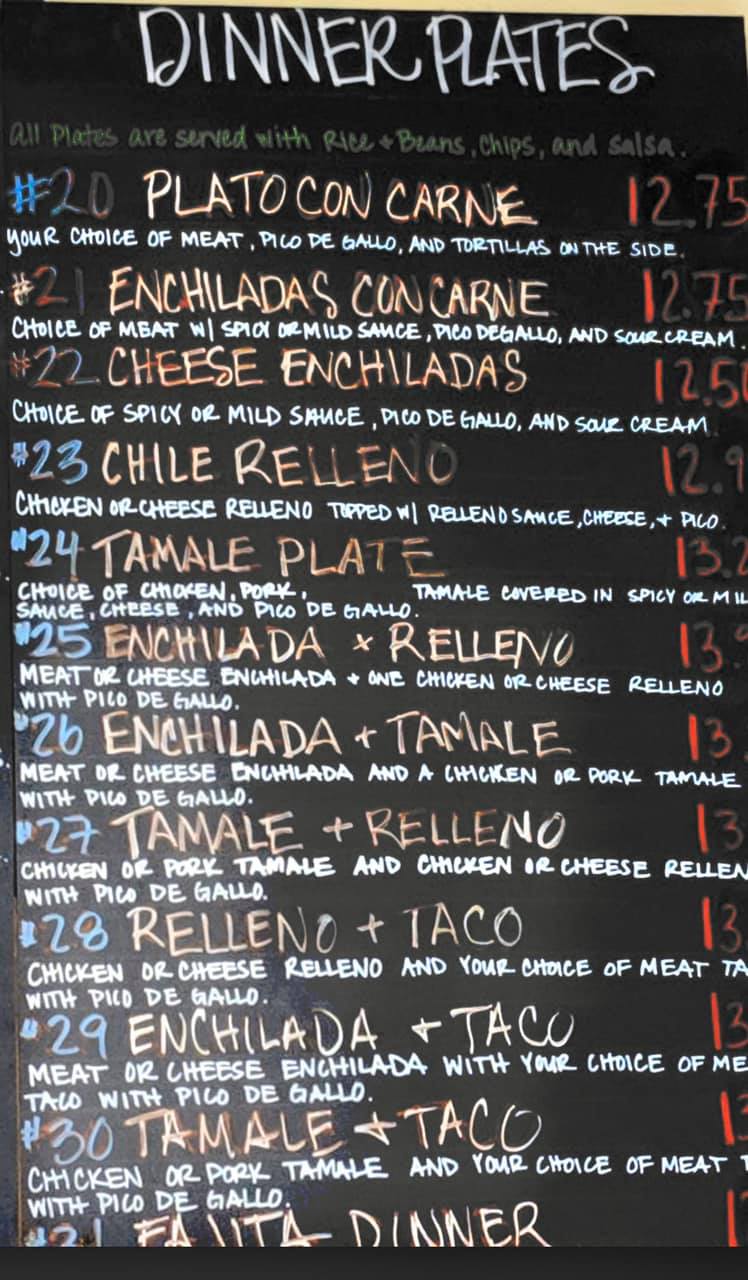 DINNER PLATES
all Plates are served with Rice + Beans, Chips, and salsa.
#20 PLATO CON CARNE 12.75
YOUR CHOICE OF MEAT, PICO DE GALLO, AND TORTILLAS ON THE SIDE.
#21 ENCHILADAS CON CARNE 12.75
CHOICE OF MEAT W/ SPICY OR MILD SAUCE, PICO DE GALLO, AND SOUR CREAM.
#22 CHEESE ENCHILADAS 12.50
CHOICE OF SPICY OR MILD SAUCE, PICO DE GALLO, AND SOUR CREAM
#23 CHILE RELLENO 12.9
CHICKEN OR CHEESE RELLENO TOPPED W/ RELLENO SAUCE, CHEESE, + PICO.
#24 TAMALE PLATE 13.2
CHOICE OF CHICKEN, PORK, TAMALE COVERED IN SPICY OR MIL
SAUCE, CHEESE, AND PICO DE GALLO.
#25 ENCHILADA + RELLENO 13.9
MEAT OR CHEESE ENCHILADA + ONE CHICKEN OR CHEESE RELLENO
WITH PICO DE GALLO.
#26 ENCHILADA + TAMALE 13
MEAT OR CHEESE ENCHILADA AND A CHICKEN OR PORK TAMALE
WITH PICO DE GALLO.
#27 TAMALE + RELLENO 13
CHICKEN OR PORK TAMALE AND CHICKEN OR CHEESE RELLEN
WITH PICO DE GALLO.
#28 RELLENO + TACO 13
CHICKEN OR CHEESE RELLENO AND YOUR CHOICE OF MEAT TA
WITH PICO DE GALLO.
#29 ENCHILADA + TACO 13
MEAT OR CHEESE ENCHILADA WITH YOUR CHOICE OF ME
TACO WITH PICO DE GALLO.
#30 TAMALE + TACO 13
CHICKEN OR PORK TAMALE AND YOUR CHOICE OF MEAT T
WITH PICO DE GALLO.
#31 FAJITA DINNER 1